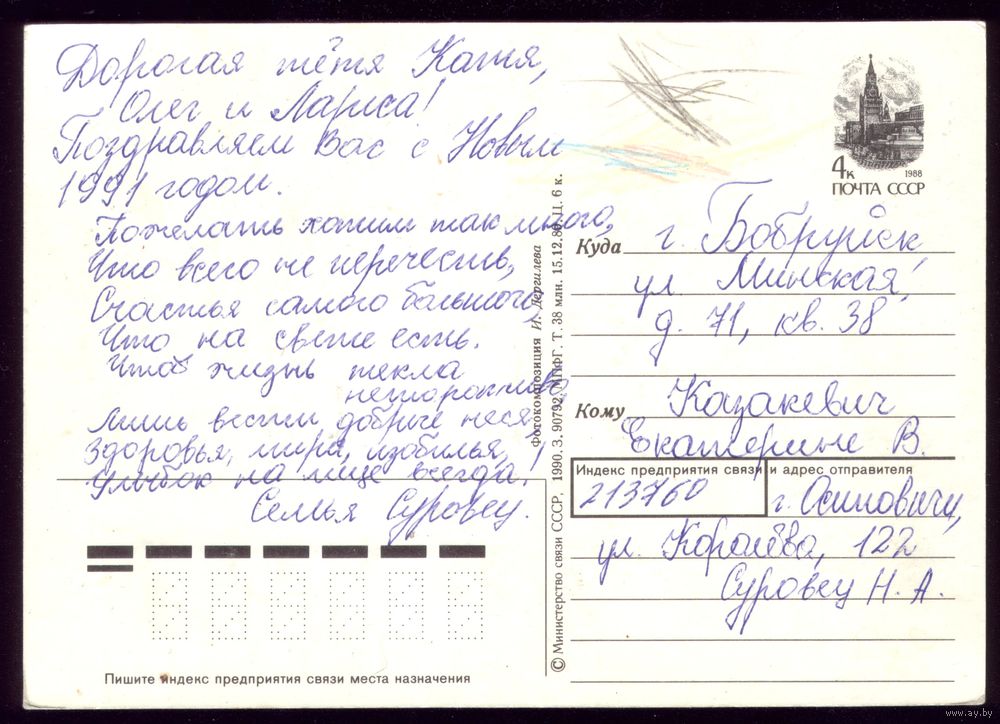 Дорогая тётя Катя,
Олег и Лариса!
Поздравляем Вас с Новым
1991 годом.
Пожелать хотим так много,
Что всего не перечесть,
Счастья самого большого,
Что на свете есть.
Чтоб жизнь текла
неторопливо,
Лишь вести добрые неся
Здоровья, мира, изобилья,
Улыбок на лице всегда!
Семья Суровец.
Пишите индекс предприятия связи места назначения
© Министерство связи СССР, 1990. З. 90792. МПФГ. Т. 38 млн. 15.12.89. Ц. 6 к.
Фотокомпозиция И. Дергилева
4к
1988
ПОЧТА СССР
Куда г. Бобруйск
ул. Минская,
д. 71, кв. 38
Кому Казакевич
Екатерине В.
Индекс предприятия связи и адрес отправителя
213760 г. Осиповичи,
ул. Королёва, 122
Суровец Н. А.
www.ay.by